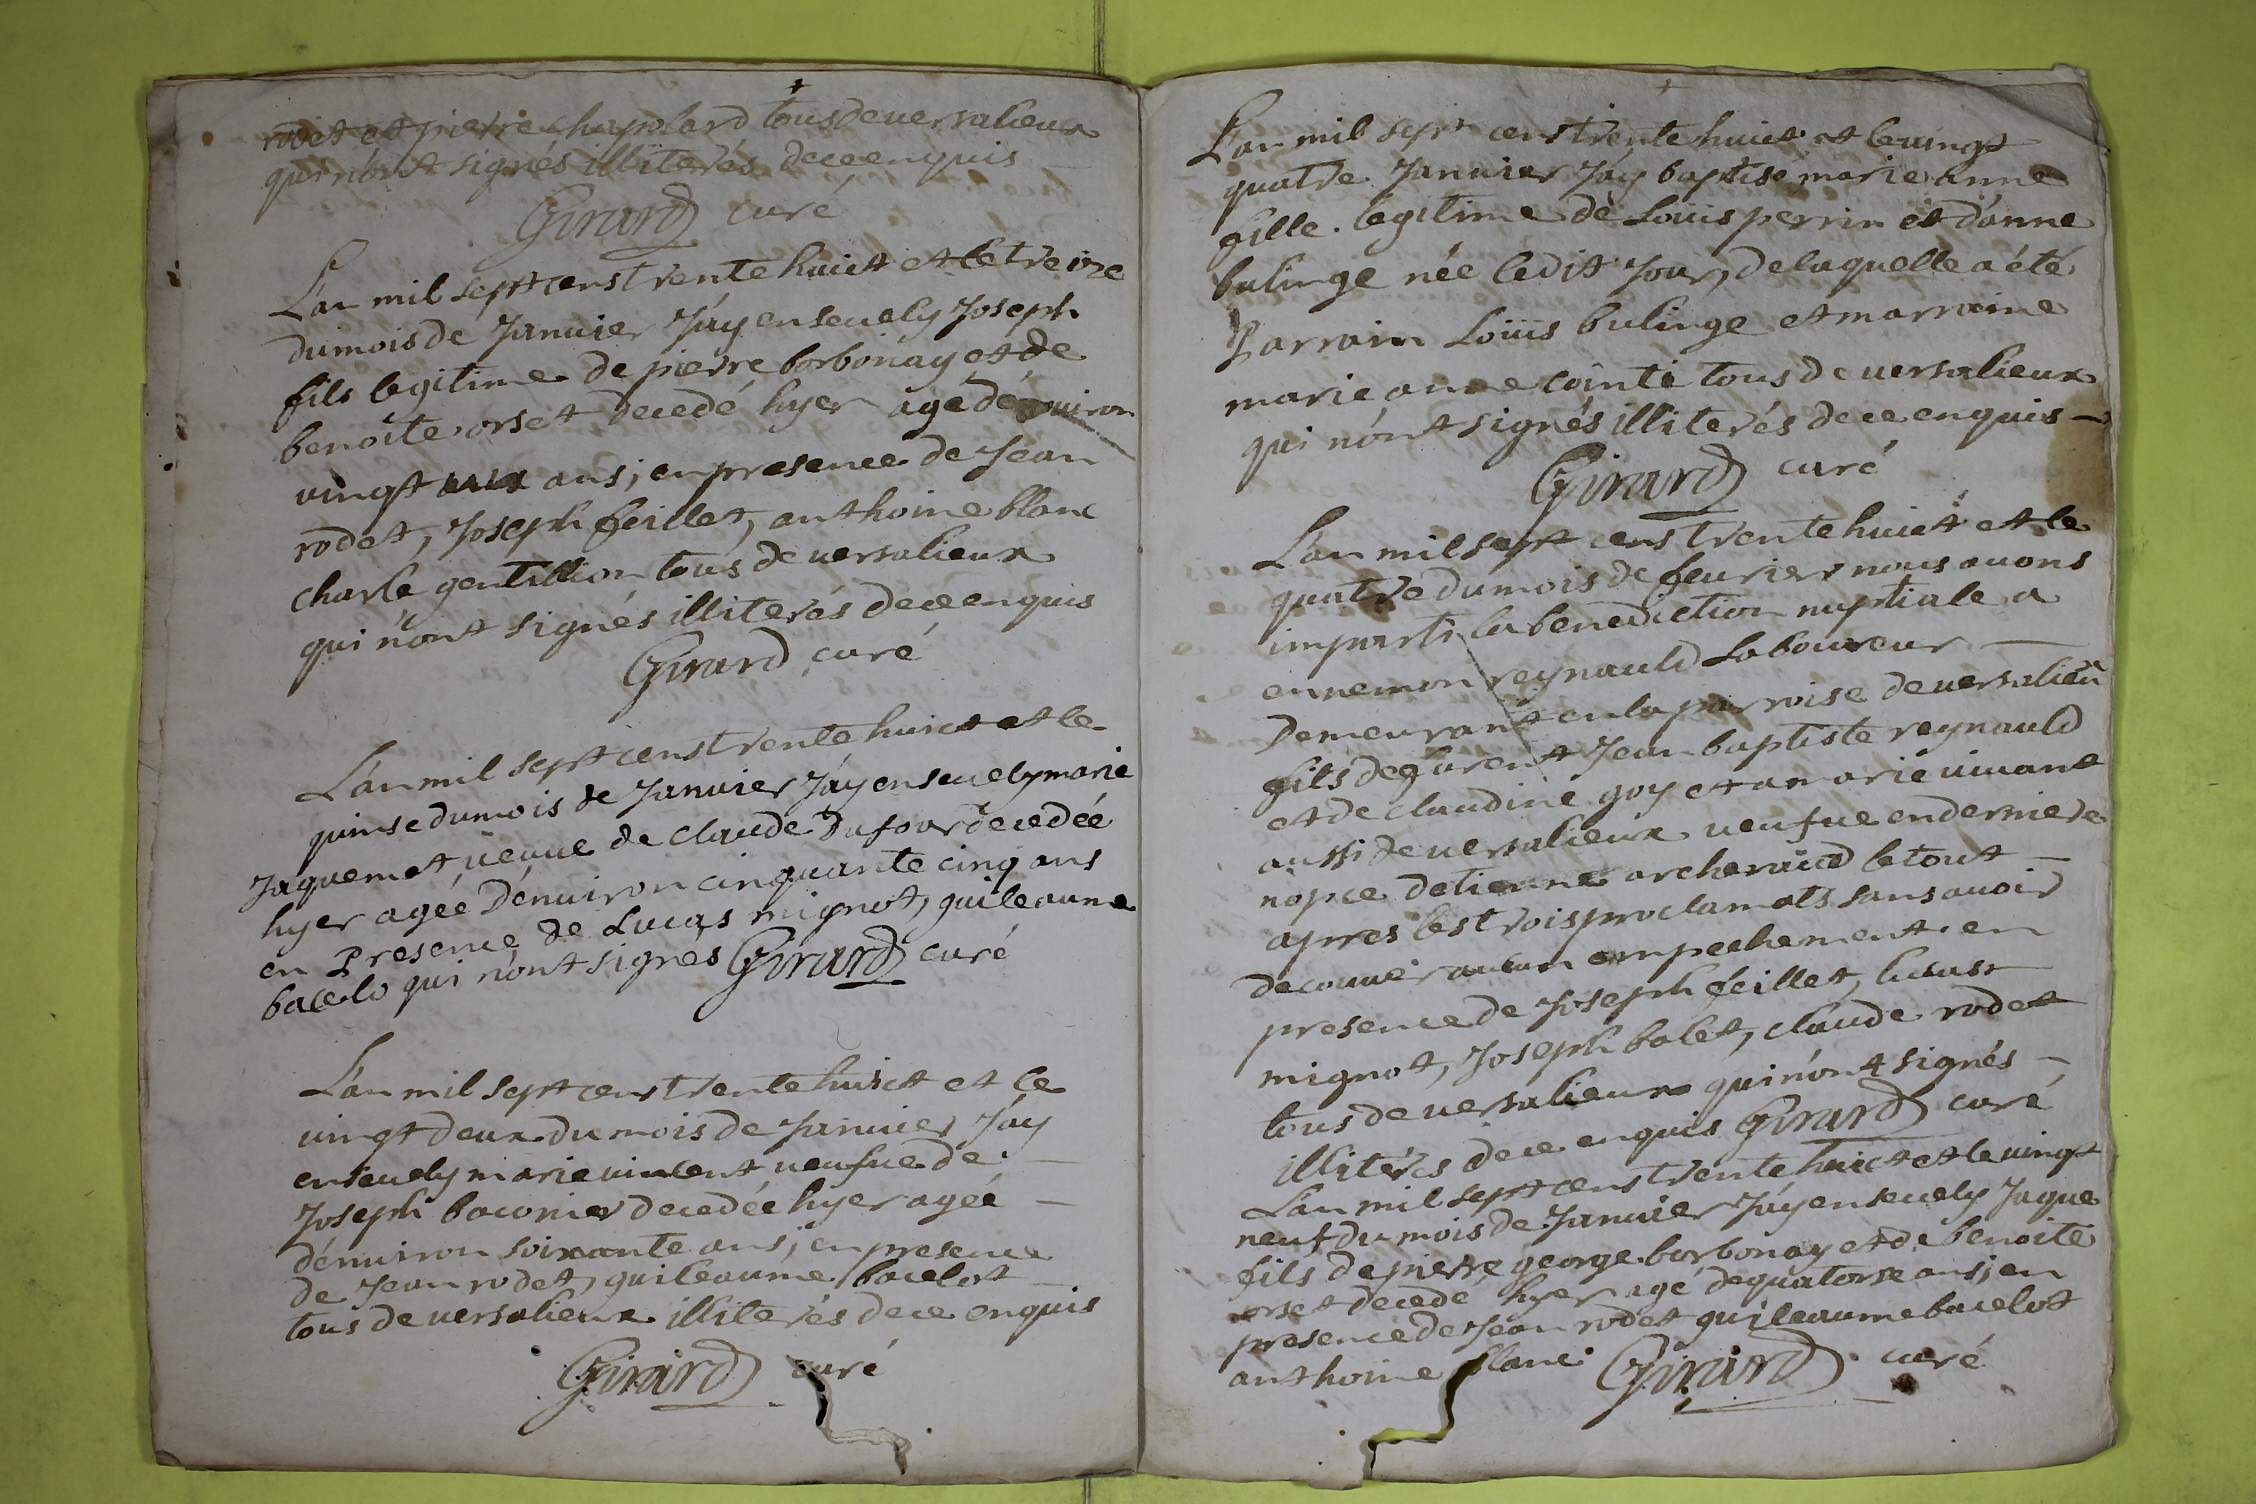 rodet et pierre chapolard tous de versalieux
qui n'ont signés illiterés de ce enquis
Girard curé
L'an mil sept cens trente huict et le treize
du mois de Janvier J'ay ensevely Joseph
fils legitime de pierre borbonay et de
benoite orset decedé hyer agé d'environ
vingt ans, en presence de Jean
rodet, Joseph feillet, anthoine blanc
charle gentillion tous de versalieux
qui n'ont signés illiterés de ce enquis
Girard curé
L'an mil sept cens trente huict et le
quinse du mois de Janvier J'ay ensevely marie
Jaquemet veuve de Claude Dufour decedée
hyer agée D'environ cinquante cinq ans
en Presence de Lucas mignot, guileaume
bacelo qui n'ont signés Girard curé
L'an mil sept cens trente huict et le
vingt deux du mois de Janvier J'ay
ensevely marie vincent veufve de
Joseph baconier decedée hyer agée
d'environ soixante ans, en presence
de Jean rodet, guileaume bacelot
tous de versalieux illiterés de ce enquis
Girard curé
L'an mil sept cens trente huict et le vingt
quatre Janvier J'ay baptisé marie anne
fille legitime de Loüis perrin et d'anne
bulinge née ledit Jour, de laquelle a été
Parrain Loüis bulinge et marraine
marie anne cointi tous de versalieux
qui n'ont signés illiterés de ce enquis
Girard curé
L'an mil sept cens trente huict et le
quatre du mois de fevrier nous avons
imparti la benediction nuptiale a
ennemon reynauld Laboureur
Demeurant en la parroise de versalieu
fils de garent Jean baptiste reynauld
et de claudine goy et a marie vivant
aussi de versalieux veufve en derniere
nopce detienne archeraud le tout
apres les trois proclamats sans avoir
decouver aucun empechement en
presence de Joseph feillet, lucast
mignot, Joseph balet, claude rodet
tous de versalieux qui n'ont signés
illiterés de ce enquis Girard curé
L'an mil sept cens trente huict et le vingt
neuf du mois de Janvier J'ay ensevely Jaque
fils de pierre george borbonay et de benoite
orset decedé hyer agé de quatorse ans, en
presence de Jean rodet guileaume bacelot
anthoine blanc Girard curé